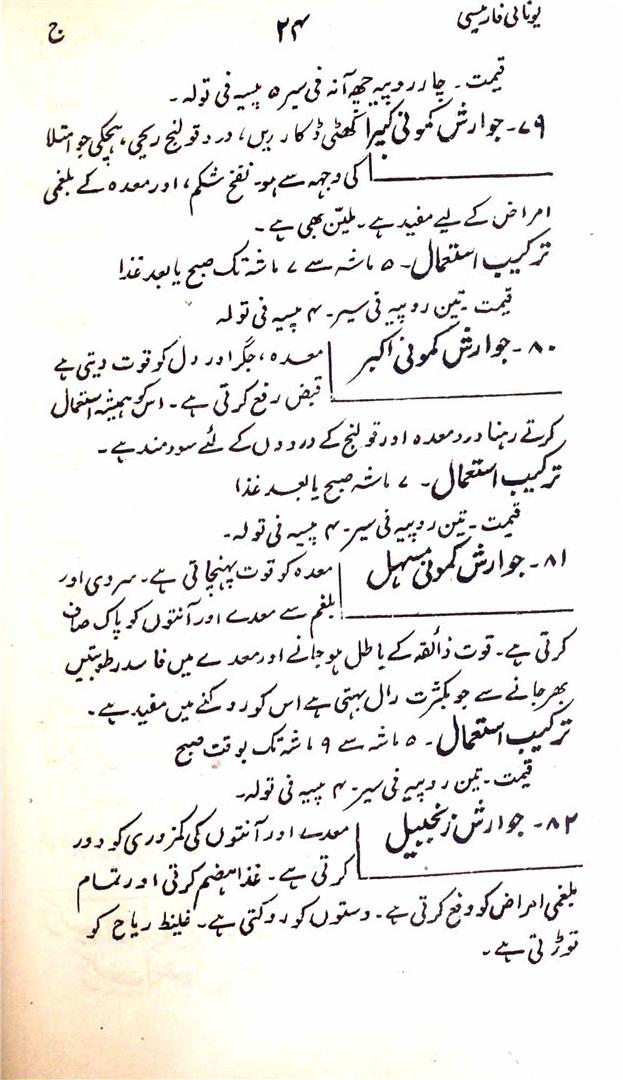 یونانی فارمیسی
۲۴
ج
قیمت۔ چار روپیہ چھ آنہ فی سیر ۵ پیسہ فی تولہ۔
۷۹۔ جوارش کمونی کبیر کھٹی ڈکاریں، درد قولنج ریحی، ہچکی جو امتلا
کی وجہہ سے ہو۔ نفخ شکم، اور معدہ کے بلغمی
امراض کے لیے مفید ہے۔ ملیّن بھی ہے۔
ترکیب استعمال۔ ۵ ماشہ سے ۷ ماشہ تک صبح یا بعد غذا
قیمت۔ تین روپیہ فی سیر۔ ۴ پیسہ فی تولہ
۸۰۔ جوارش کمونی اکبر معدہ، جگر اور دل کو قوت دیتی ہے
قبض رفع کرتی ہے۔ اس کو ہمیشہ استعمال
کرتے رہنا درد معدہ اور قولنج کے دردوں کے لئے سودمند ہے۔
ترکیب استعمال۔ ۷ ماشہ صبح یا بعد غذا
قیمت۔ تین روپیہ فی سیر۔ ۴ پیسہ فی تولہ۔
۸۱۔ جوارش کمونی مسہل معدہ کو قوت پہنچاتی ہے۔ سردی اور
بلغم سے معدے اور آنتوں کو پاک صاف
کرتی ہے۔ قوت ذائقہ کے باطل ہو جانے اور معدے میں فاسد رطوبتیں
بھر جانے سے جو بکثرت رال بہتی ہے اس کو روکنے میں مفید ہے۔
ترکیب استعمال۔ ۵ ماشہ سے ۹ ماشہ تک بوقت صبح
قیمت۔ تین روپیہ فی سیر۔ ۴ پیسہ فی تولہ۔
۸۲۔ جوارش زنجبیل معدے اور آنتوں کی کمزوری کو دور
کرتی ہے۔ غذا ہضم کرتی اور تمام
بلغمی امراض کو دفع کرتی ہے۔ دستوں کو روکتی ہے۔ غلیظ ریاح کو
توڑتی ہے۔